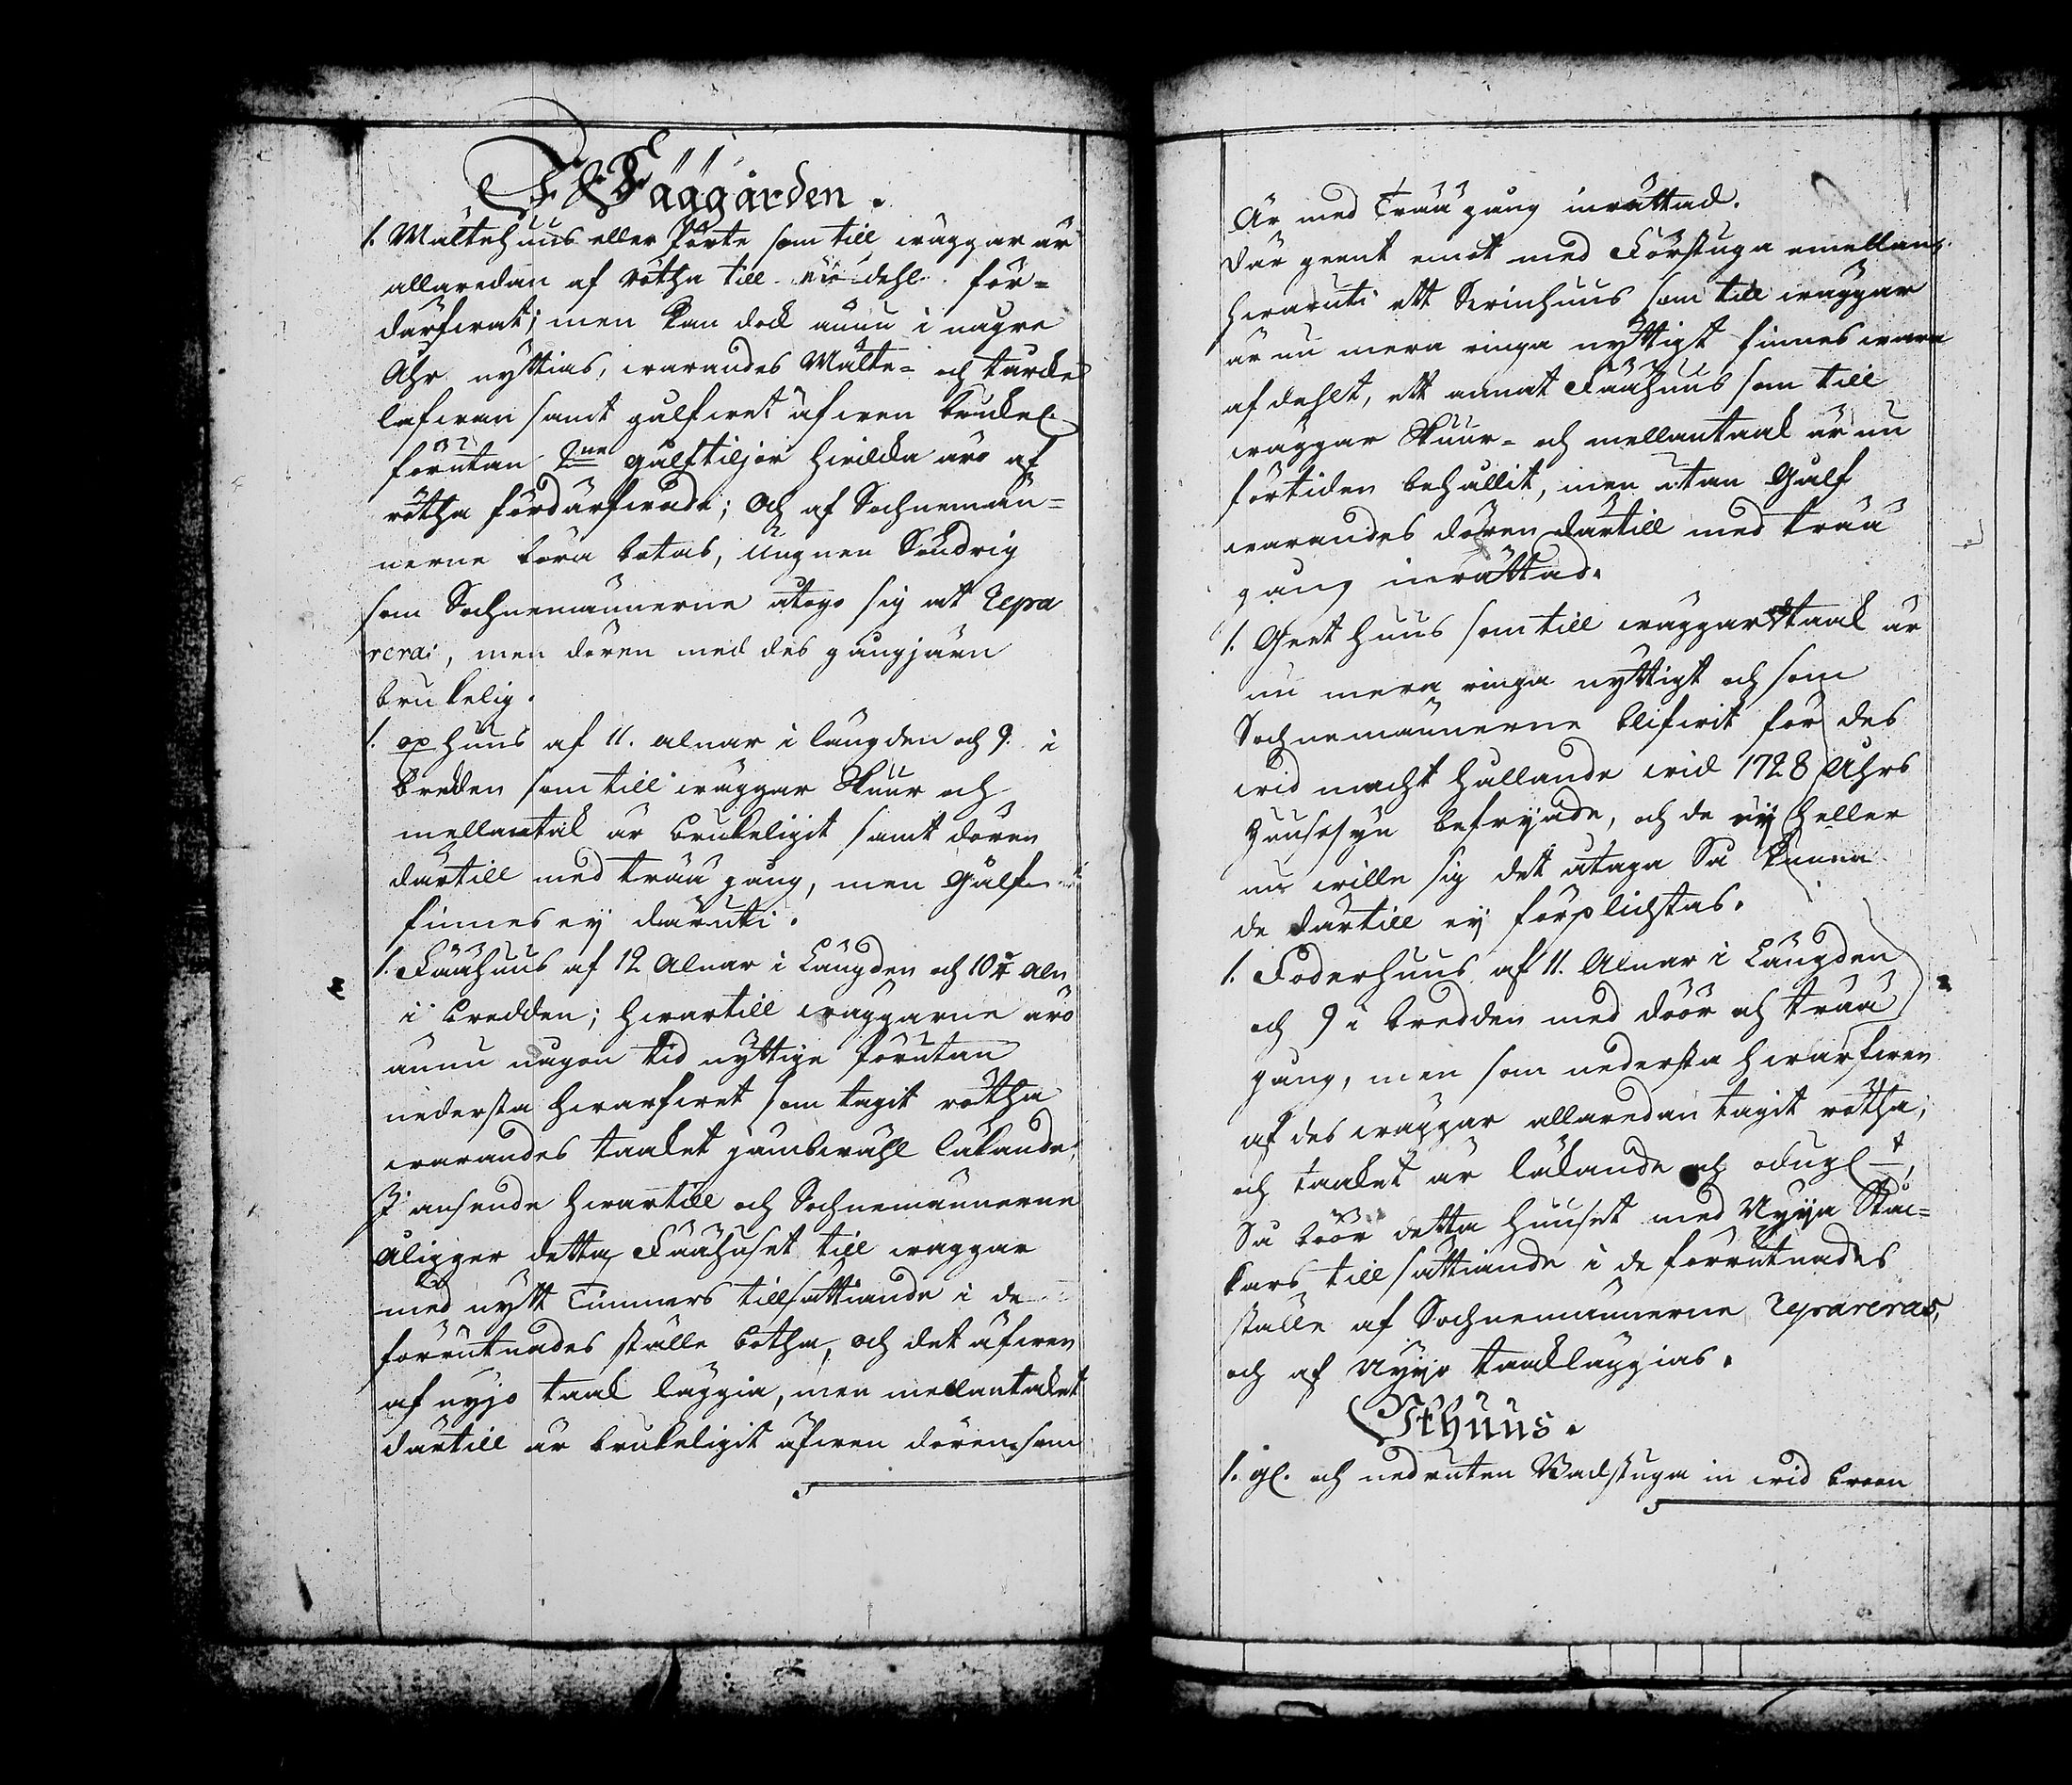 Fäägården.
1. Mältehuus eller Pörte som till wäggar är
allaredan af rötha till een dehl för=
därfwat; men kan dock ännu i någre
Åhr nyttias, warandes Mälte= och tarcke
lafwan samt gålfwet äfwen brukel.
förutan 2ne gålftiljor hwilcka äro af
rötha fördärfwade; och af Sochnemän=
nerne böra botas, Ungnen Söndrig
som Sochnemännerne åtogo sig at Repa
rera:, men dören med des gångjärn
brukelig.
1. oxhuus af 11. alnar i längden och 9. i
bredden som till wäggar Skuur och
mellantak är brukeligit samt dören
därtill med trää gång, men Gålf
finnes ey däruti.
1. Fäähuus af 12 Alnar i Längden och 10 aln
i bredden; hwartill wäggarne äro
ännu någon tid nyttige förutan
nedersta hwarfwet som tagit rötha
warandes taaket jämbwähl läkande,
I anseende hwartill och Sochnemännerne
åligger detta Fäähuset till wäggar
med nytt Timmers tillsättiande i de
förrutnades ställe botha, och det äfwen
af nyjo taak läggia, men mellantaket
därtill är brukeligit äfwen dören som
Är med Trää gång inrättad.
Där geent emot med Förstuga emellan,
hwaruti ett Swinhuus som till wäggar
är nu mera ringa nyttigt finnes wara
afdehlt, ett annat Fäähuus som till
wäggar Skuur= och mellantaak är nu
förtiden behållit, men utan Gålf
warandes dören därtill med trää
gång inrättad.
1. Geet huus som till wäggar & taak är
nu mera ringa nyttigt och som
Sochnemännerne blifwit för des
wid macht hållande wid 1728 Åhrs
Huusesyn befryade, och de ey heller
nu wille sig det åtaga Så kunna
de därtill ey förplichtas.
1. Foderhuus af 11. Alnar i Längden
och 9 i bredden med döör och trää
gång, men som nedersta hwarfwen
af des wäggar allaredan tagit rötha,
och taaket är läkande och odugl t,
Så böör detta huuset med Nyya Stoc=
kars tillsättiande i de förrutnades
ställe af Sochnemännerne Repareras,
och af Nyyo taackläggias.
Uthuus.
1. gl. och nedruten Badstuga in wid broen